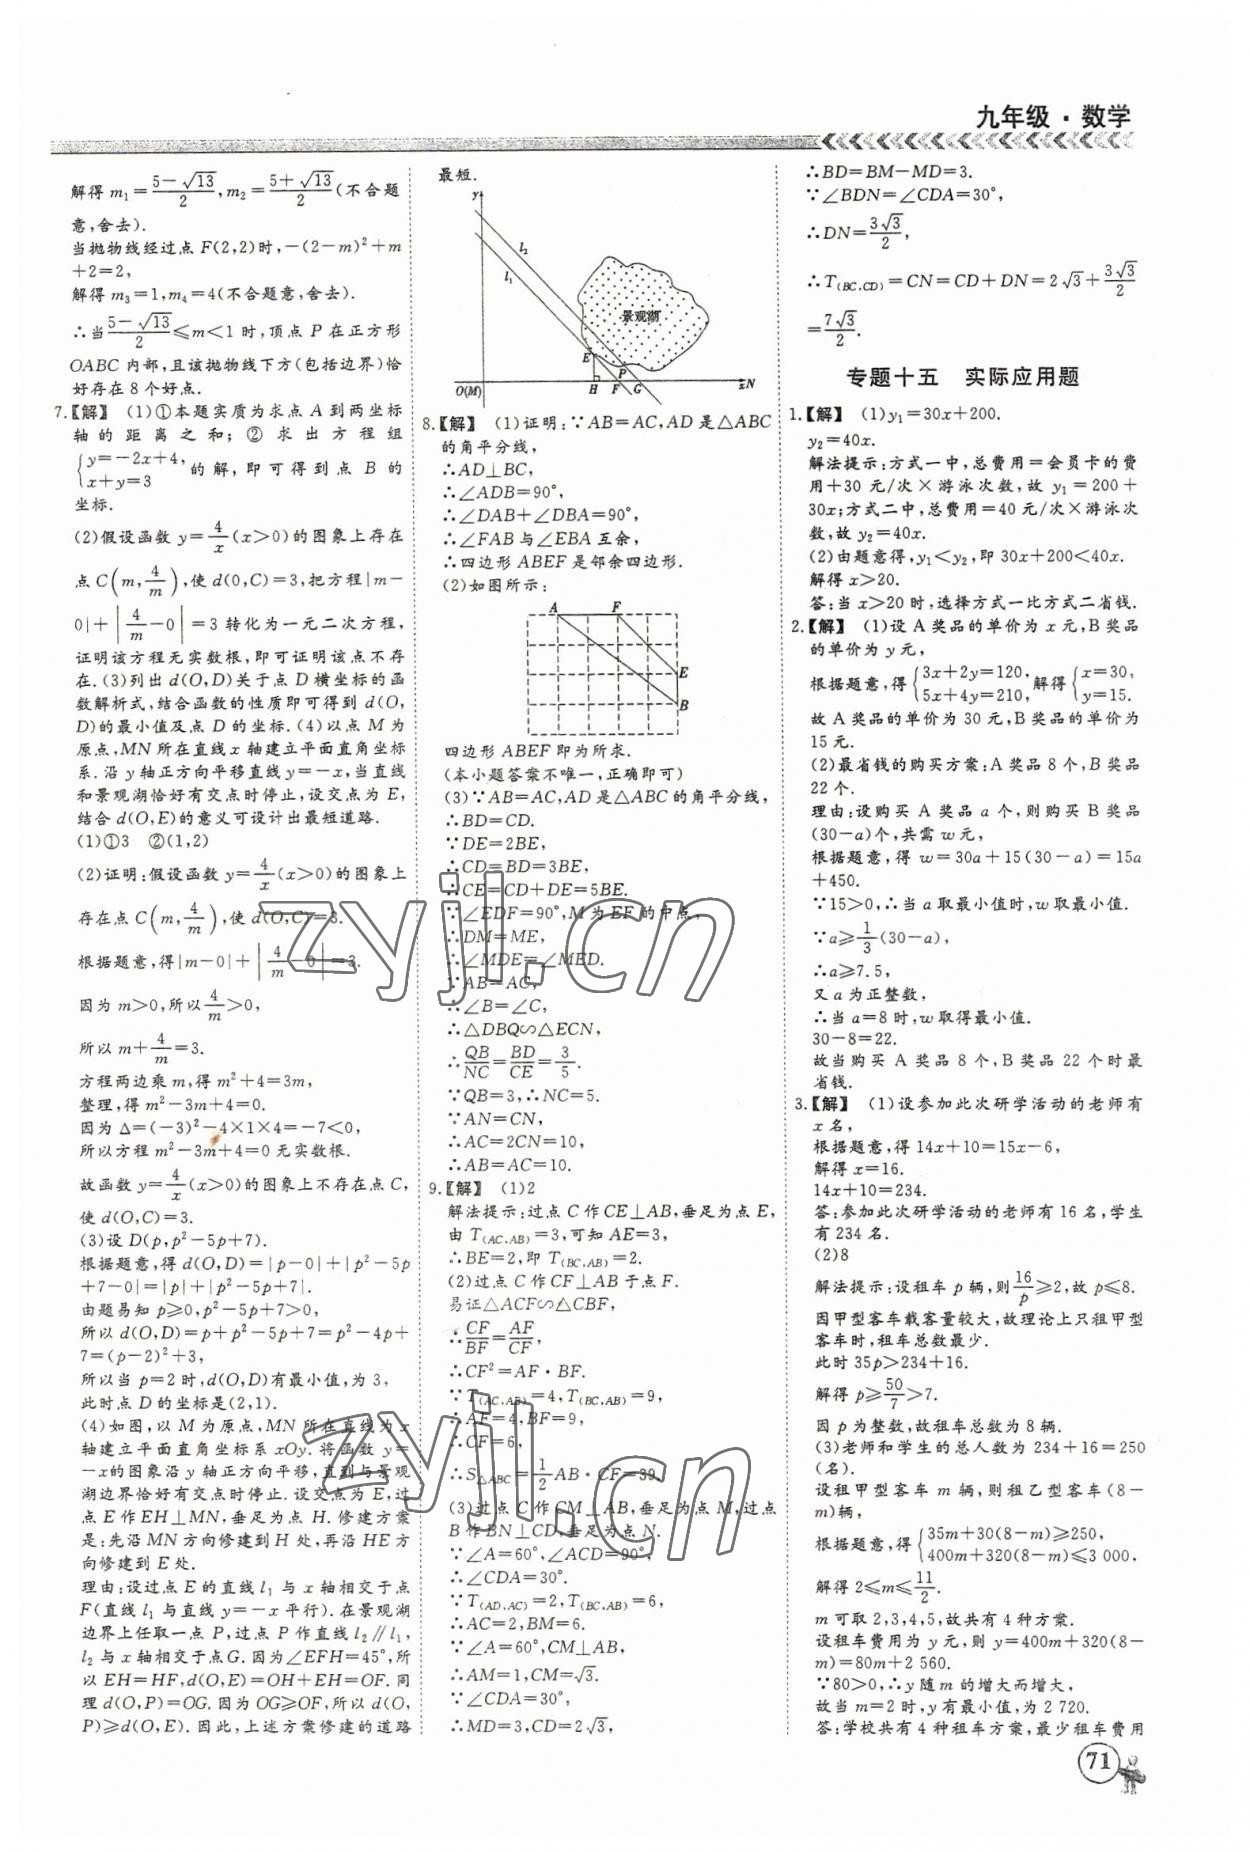 九年级·数学
解得 m₁=(5-√13)/2, m₂=(5+√13)/2(不合题
意,舍去).
当抛物线经过点 F(2,2)时,-(2-m)²+m
+2=2,
解得 m₃=1,m₄=4(不合题意,舍去).
∴当(5-√13)/2≤m<1 时,顶点 P 在正方形
OABC 内部,且该抛物线下方(包括边界)恰
好存在 8 个好点.
7.【解】 (1)①本题实质为求点 A 到两坐标
轴的距离之和;②求出方程组
{y=-2x+4, x+y=3 的解,即可得到点 B 的
坐标.
(2)假设函数 y=4/x(x>0)的图象上存在
点 C(m,4/m),使 d(O,C)=3,把方程|m-
0|+|4/m-0|=3 转化为一元二次方程,
证明该方程无实数根,即可证明该点不存
在.(3)列出 d(O,D)关于点 D 横坐标的函
数解析式,结合函数的性质即可得到 d(O,
D)的最小值及点 D 的坐标.(4)以点 M 为
原点,MN 所在直线 x 轴建立平面直角坐标
系.沿 y 轴正方向平移直线 y=-x,当直线
和景观湖恰好有交点时停止,设交点为 E,
结合 d(O,E)的意义可设计出最短道路.
(1)①3 ②(1,2)
(2)证明:假设函数 y=4/x(x>0)的图象上
存在点 C(m,4/m),使 d(O,C)=3.
根据题意,得|m-0|+|4/m-0|=3.
因为 m>0,所以4/m>0,
所以 m+4/m=3.
方程两边乘 m,得 m²+4=3m,
整理,得 m²-3m+4=0.
因为 Δ=(-3)²-4×1×4=-7<0,
所以方程 m²-3m+4=0 无实数根.
故函数 y=4/x(x>0)的图象上不存在点 C,
使 d(O,C)=3.
(3)设 D(p,p²-5p+7).
根据题意,得 d(O,D)=|p-0|+|p²-5p
+7-0|=|p|+|p²-5p+7|.
由题易知 p≥0,p²-5p+7>0,
所以 d(O,D)=p+p²-5p+7=p²-4p+
7=(p-2)²+3,
所以当 p=2 时,d(O,D)有最小值,为 3,
此时点 D 的坐标是(2,1).
(4)如图,以 M 为原点,MN 所在直线为 x
轴建立平面直角坐标系 xOy.将函数 y=
-x的图象沿 y 轴正方向平移,直到与景观
湖边界恰好有交点时停止.设交点为 E,过
点 E 作 EH⊥MN,垂足为点 H.修建方案
是:先沿 MN 方向修建到 H 处,再沿 HE 方
向修建到 E 处.
理由:设过点 E 的直线 l₁ 与 x 轴相交于点
F(直线 l₁ 与直线 y=-x 平行).在景观湖
边界上任取一点 P,过点 P 作直线 l₂∥l₁,
l₂ 与 x 轴相交于点 G.因为∠EFH=45°,所
以 EH=HF,d(O,E)=OH+EH=OF.同
理 d(O,P)=OG.因为 OG≥OF,所以 d(O,
P)≥d(O,E).因此,上述方案修建的道路
最短.
y
l₂
l₁
景观湖
E
P
O(M)
H
F
G
x
N
8.【解】 (1)证明:∵AB=AC,AD 是△ABC
的角平分线,
∴AD⊥BC,
∴∠ADB=90°,
∴∠DAB+∠DBA=90°,
∴∠FAB 与∠EBA 互余,
∴四边形 ABEF 是邻余四边形.
(2)如图所示:
A
F
E
B
四边形 ABEF 即为所求.
(本小题答案不唯一,正确即可)
(3)∵AB=AC,AD 是△ABC 的角平分线,
∴BD=CD.
∵DE=2BE,
∴CD=BD=3BE,
∴CE=CD+DE=5BE.
∵∠EDF=90°,M 为 EF 的中点,
∴DM=ME,
∴∠MDE=∠MED.
∵AB=AC,
∴∠B=∠C,
∴△DBQ∽△ECN,
∴QB/NC=BD/CE=3/5.
∵QB=3,∴NC=5.
∵AN=CN,
∴AC=2CN=10,
∴AB=AC=10.
9.【解】 (1)2
解法提示:过点 C 作 CE⊥AB,垂足为点 E,
由 T(AC,AB)=3,可知 AE=3,
∴BE=2,即 T(BC,AB)=2.
(2)过点 C 作 CF⊥AB 于点 F.
易证△ACF∽△CBF,
∴CF/BF=AF/CF,
∴CF²=AF·BF.
∵T(AC,AB)=4,T(BC,AB)=9,
∴AF=4,BF=9,
∴CF=6,
∴S△ABC=1/2AB·CF=39.
(3)过点 C 作 CM⊥AB,垂足为点 M,过点
B 作 BN⊥CD,垂足为点 N.
∵∠A=60°,∠ACD=90°,
∴∠CDA=30°.
∵T(AD,AC)=2,T(BC,AB)=6,
∴AC=2,BM=6.
∵∠A=60°,CM⊥AB,
∴AM=1,CM=√3.
∵∠CDA=30°,
∴MD=3,CD=2√3,
∴BD=BM-MD=3.
∵∠BDN=∠CDA=30°,
∴DN=3√3/2,
∴T(BC,CD)=CN=CD+DN=2√3+3√3/2
=7√3/2.
专题十五 实际应用题
1.【解】 (1)y₁=30x+200.
y₂=40x.
解法提示:方式一中,总费用=会员卡的费
用+30 元/次×游泳次数,故 y₁=200+
30x;方式二中,总费用=40 元/次×游泳次
数,故 y₂=40x.
(2)由题意得,y₁<y₂,即 30x+200<40x.
解得 x>20.
答:当 x>20 时,选择方式一比方式二省钱.
2.【解】 (1)设 A 奖品的单价为 x 元,B 奖品
的单价为 y 元,
根据题意,得{3x+2y=120, 5x+4y=210, 解得{x=30, y=15.
故 A 奖品的单价为 30 元,B 奖品的单价为
15 元.
(2)最省钱的购买方案:A 奖品 8 个,B 奖品
22 个.
理由:设购买 A 奖品 a 个,则购买 B 奖品
(30-a)个,共需 w 元,
根据题意,得 w=30a+15(30-a)=15a
+450.
∵15>0,∴当 a 取最小值时,w 取最小值.
∵a≥1/3(30-a),
∴a≥7.5,
又 a 为正整数,
∴当 a=8 时,w 取得最小值.
30-8=22.
故当购买 A 奖品 8 个,B 奖品 22 个时最
省钱.
3.【解】 (1)设参加此次研学活动的老师有
x 名,
根据题意,得 14x+10=15x-6,
解得 x=16.
14x+10=234.
答:参加此次研学活动的老师有 16 名,学生
有 234 名.
(2)8
解法提示:设租车 p 辆,则16/p≥2,故 p≤8.
因甲型客车载客量较大,故理论上只租甲型
客车时,租车总数最少.
此时 35p>234+16.
解得 p≥50/7>7.
因 p 为整数,故租车总数为 8 辆.
(3)老师和学生的总人数为 234+16=250
(名).
设租甲型客车 m 辆,则租乙型客车(8-
m)辆,
根据题意,得{35m+30(8-m)≥250, 400m+320(8-m)≤3 000,
解得 2≤m≤11/2.
m 可取 2,3,4,5,故共有 4 种方案.
设租车费用为 y 元,则 y=400m+320(8-
m)=80m+2 560.
∵80>0,∴y 随 m 的增大而增大,
故当 m=2 时,y有最小值,为 2 720.
答:学校共有 4 种租车方案,最少租车费用
71
zyjl.cn
zyjl.cn